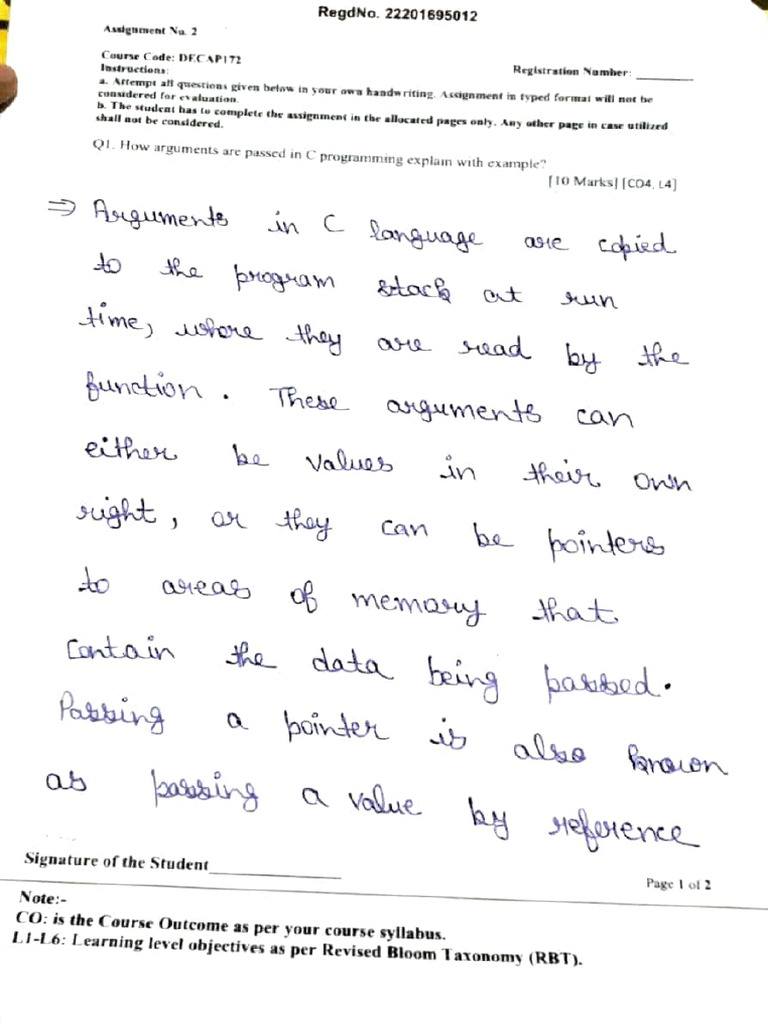 RegdNo. 22201695012
Assignment No. 2
Course Code: DECAP172
Registration Number: ________
Instructions:
a. Attempt all questions given below in your own handwriting. Assignment in typed format will not be
considered for evaluation.
b. The student has to complete the assignment in the allocated pages only. Any other page in case utilized
shall not be considered.
Q1. How arguments are passed in C programming explain with example?
[10 Marks] [CO4, L4]
⇒ Arguments in C language are copied
to the program stack at run
time, where they are read by the
function. These arguments can
either be values in their own
right, or they can be pointers
to areas of memory that
contain the data being passed.
Passing a pointer is also known
as passing a value by reference
Signature of the Student____________________
Page 1 of 2
Note:-
CO: is the Course Outcome as per your course syllabus.
L1-L6: Learning level objectives as per Revised Bloom Taxonomy (RBT).